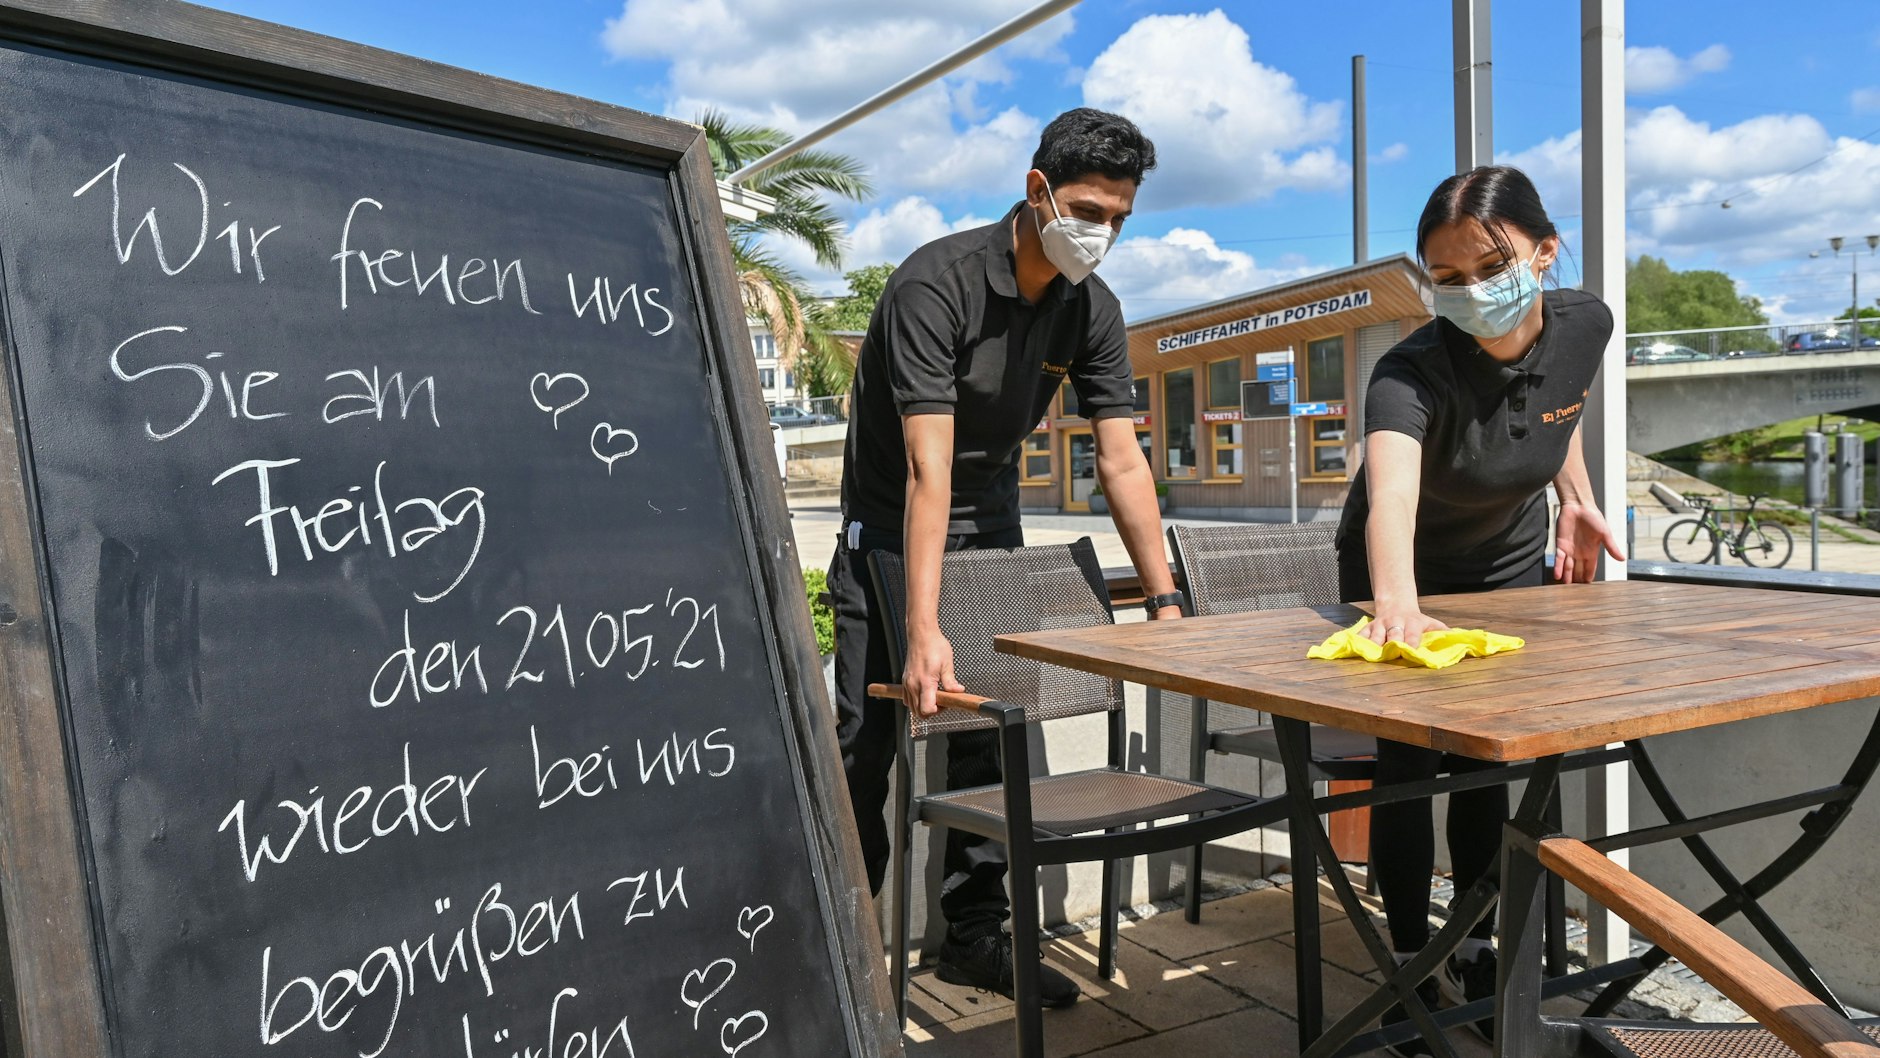 Wir freuen uns
Sie am
Freitag
den 21.05.'21
wieder bei uns
begrüßen zu
dürfen
SCHIFFFAHRT in POTSDAM
TICKETS 2
El Puerto